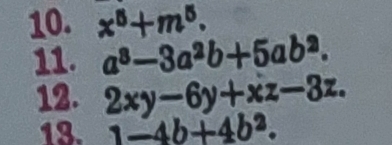 10. x⁵+m⁵.
11. a³−3a²b+5ab².
12. 2xy−6y+xz−3z.
13. 1−4b+4b².